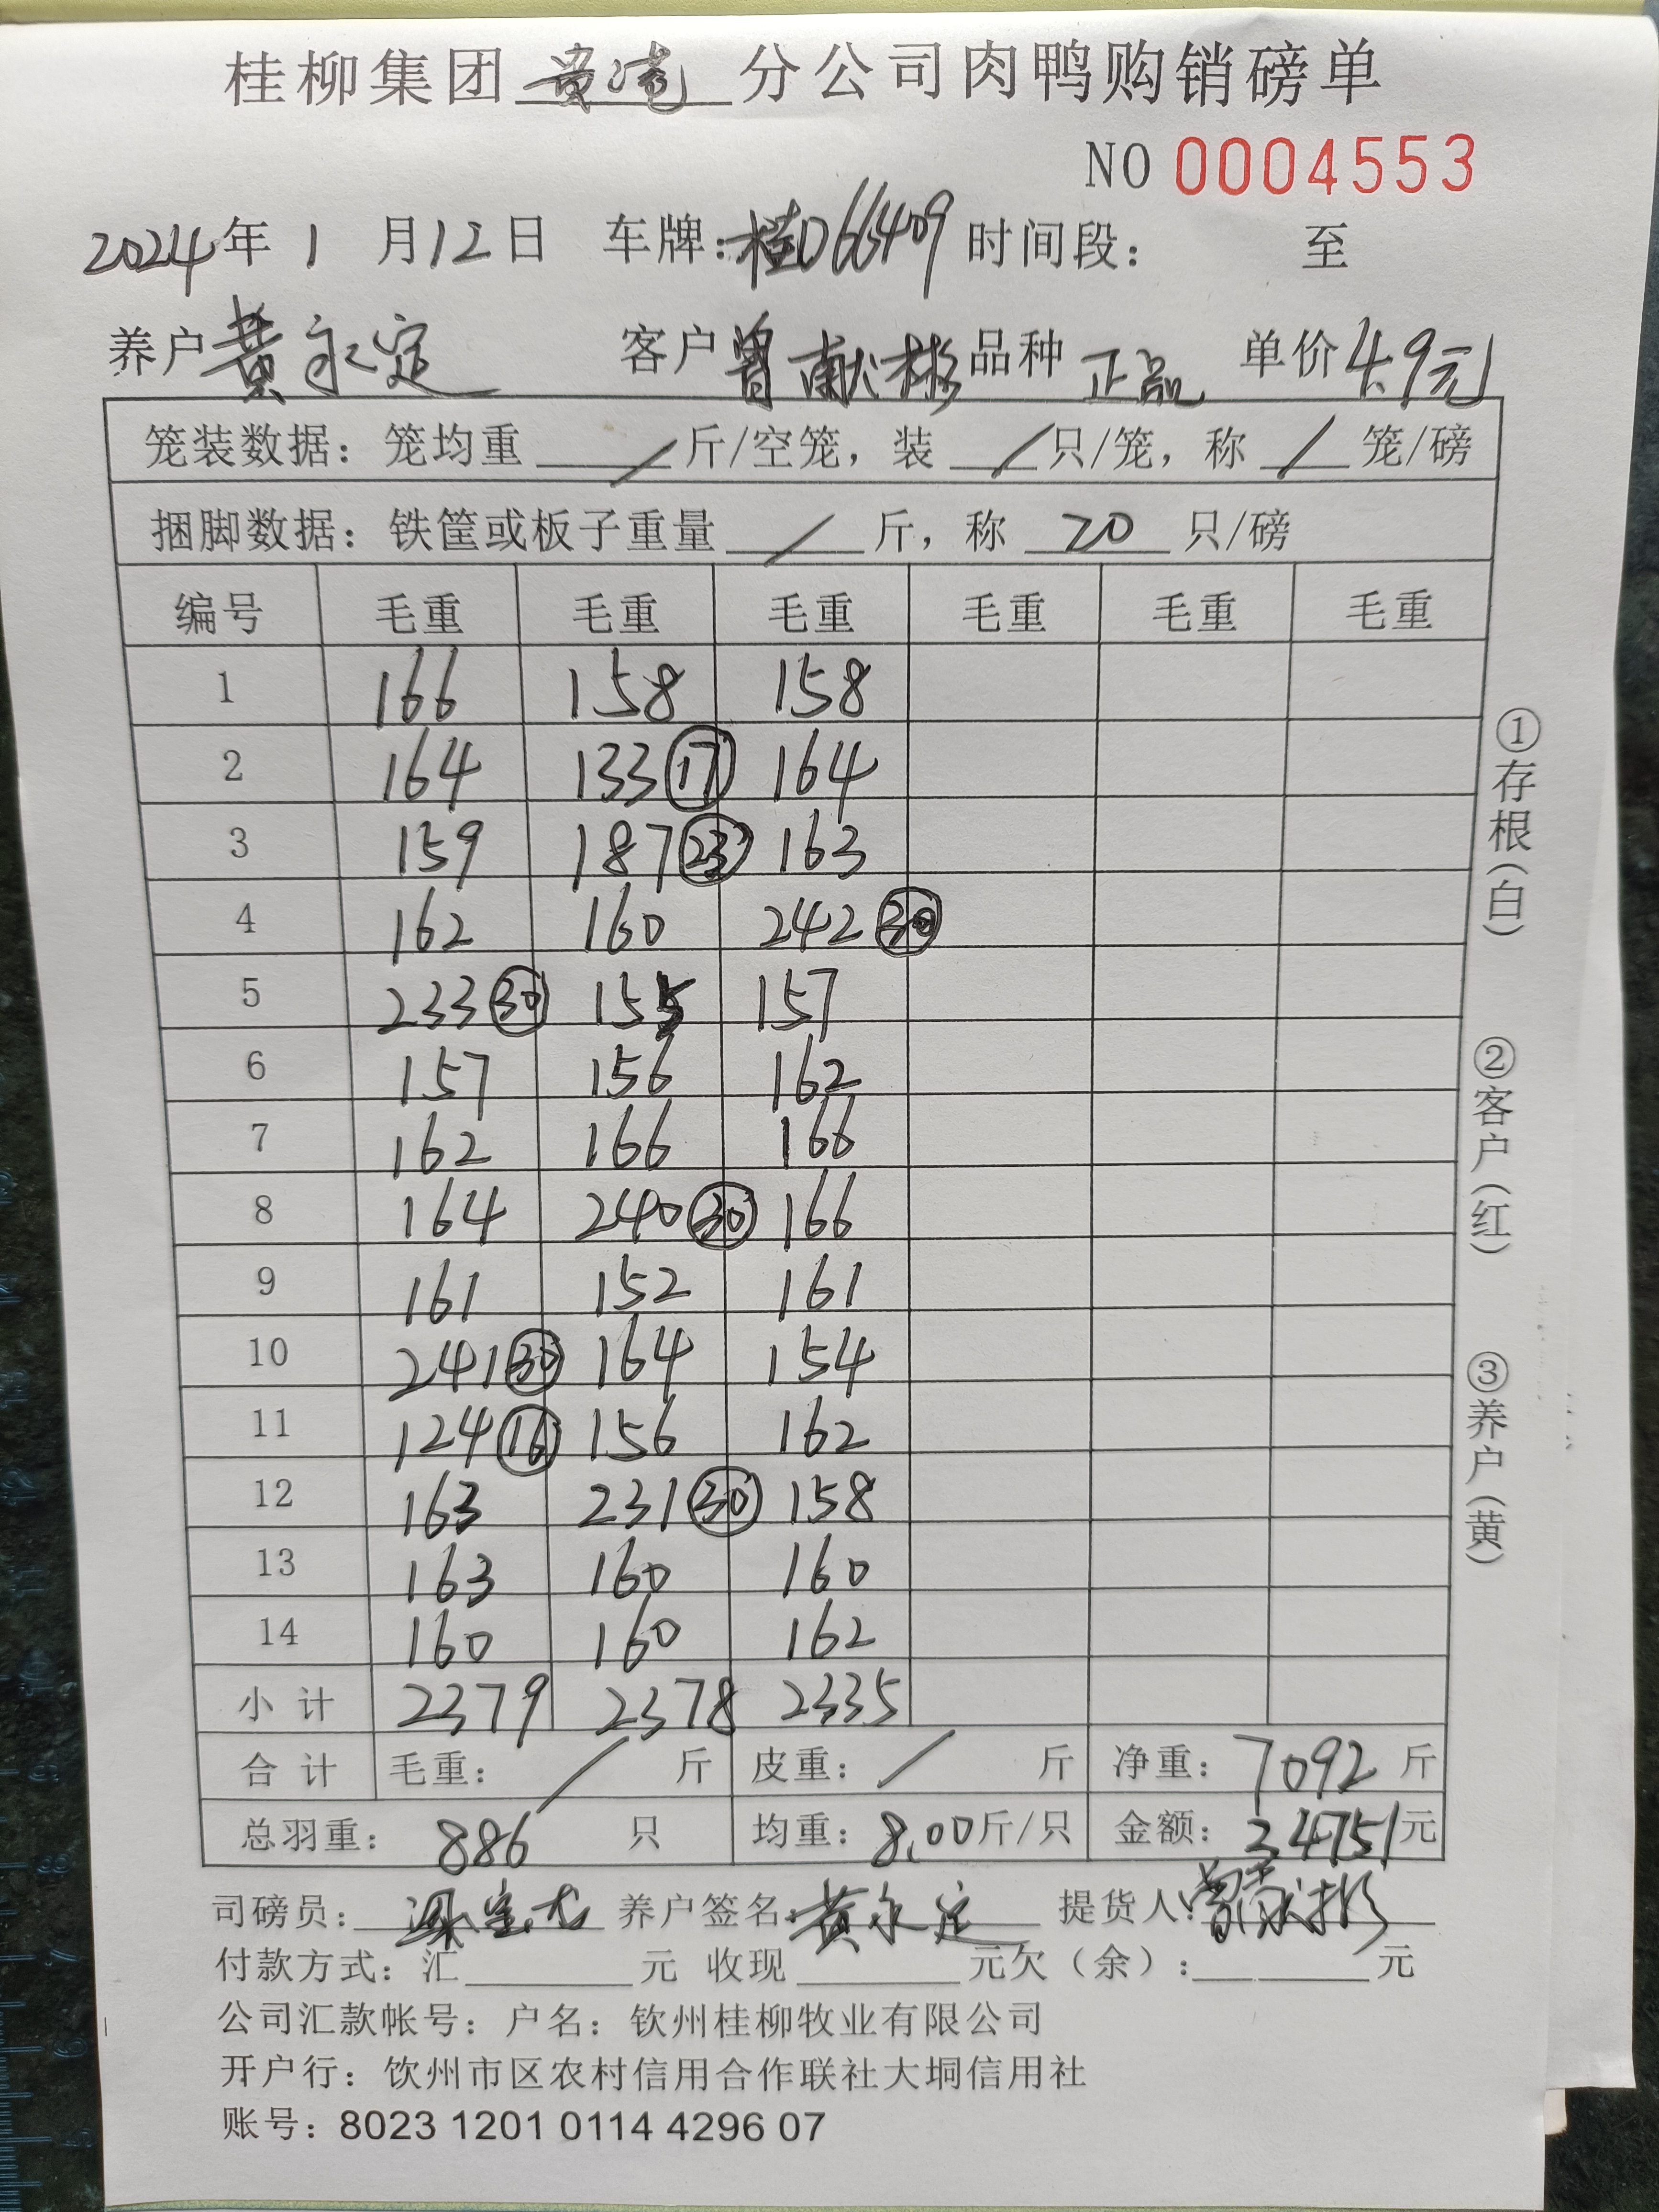 桂柳集团贵港分公司肉鸭购销磅单
NO 0004553
2024年 1 月12日 车牌：桂D66409 时间段： 至
养户 黄永定 客户 曾献彬 品种 正品 单价 4.9元
笼装数据：笼均重 / 斤/空笼，装 / 只/笼，称 / 笼/磅
捆脚数据：铁筐或板子重量 / 斤，称 20 只/磅
编号 毛重 毛重 毛重 毛重 毛重 毛重
1 166 158 158
2 164 133 ⑰ 164
3 159 187 ㉓ 163
4 162 160 242 ㉚
5 233 ㉚ 155 157
6 157 156 162
7 162 166 166
8 164 240 ㉚ 166
9 161 152 161
10 241 ㉚ 164 154
11 124 ⑯ 156 162
12 163 231 ㉚ 158
13 163 160 160
14 160 160 162
小计 2379 2378 2335
合计 毛重： / 斤 皮重： / 斤 净重：7092 斤
总羽重： 886 只 均重：8.00斤/只 金额：34751元
司磅员： 养户签名：黄永定 提货人：曾献彬
付款方式：汇 元 收现 元欠（余）： 元
公司汇款帐号：户名：钦州桂柳牧业有限公司
开户行：饮州市区农村信用合作联社大垌信用社
账号：8023 1201 0114 4296 07
①存根（白）
②客户（红）
③养户（黄）